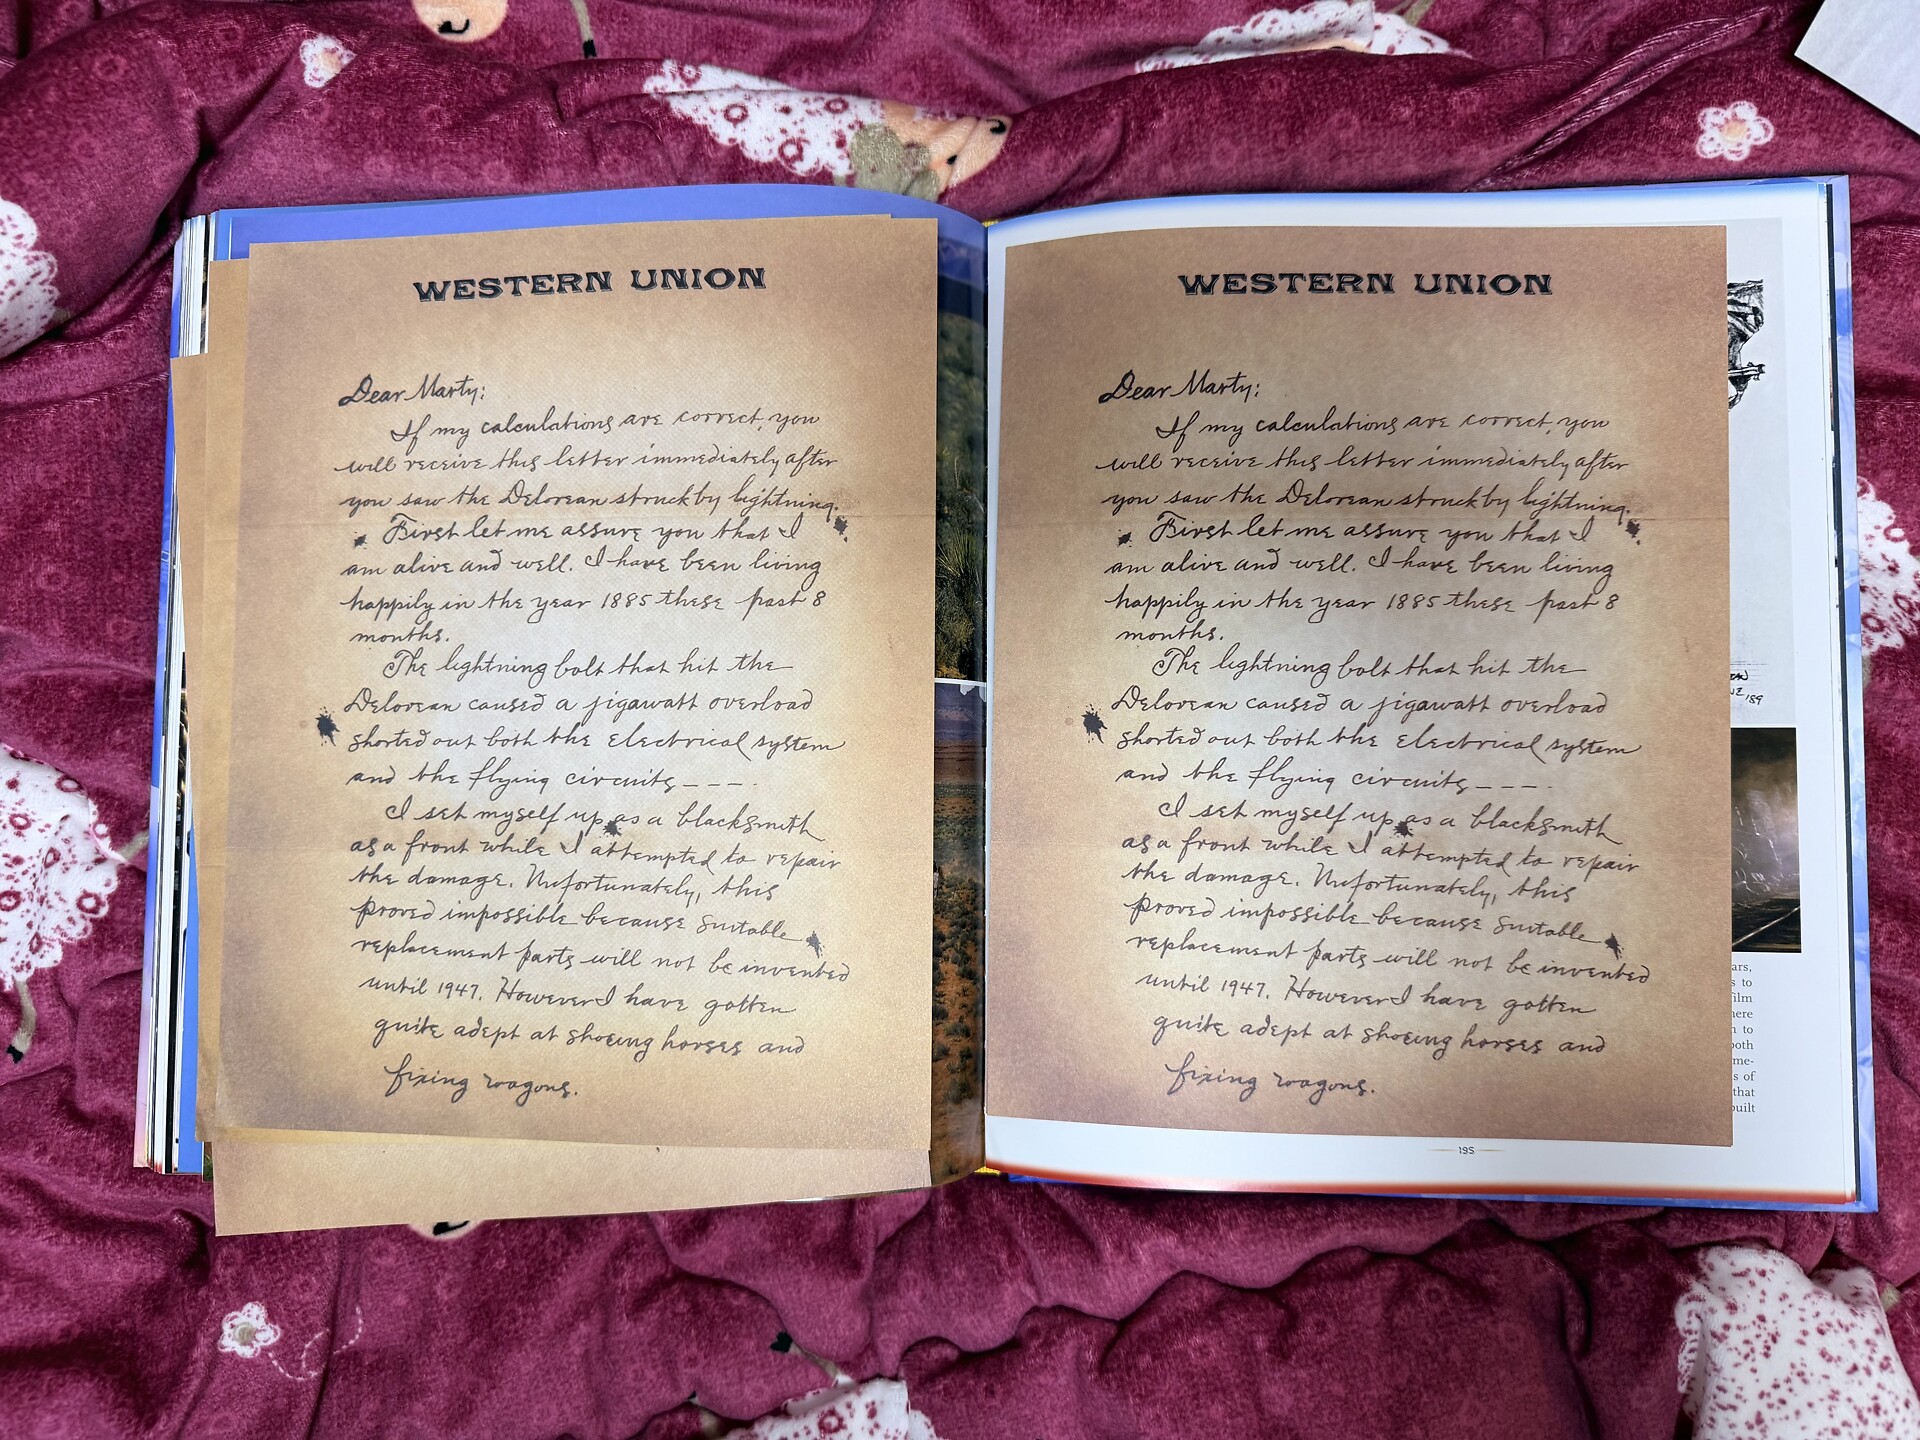 WESTERN UNION
Dear Marty:
If my calculations are correct, you
will receive this letter immediately after
you saw the Delorean struck by lightning.
First let me assure you that I
am alive and well. I have been living
happily in the year 1885 these past 8
months.
The lightning bolt that hit the
Delorean caused a jigawatt overload
shorted out both the electrical system
and the flying circuits----.
I set myself up as a blacksmith
as a front while I attempted to repair
the damage. Unfortunately, this
proved impossible because suitable
replacement parts will not be invented
until 1947. However I have gotten
quite adept at shoeing horses and
fixing wagons.
WESTERN UNION
Dear Marty:
If my calculations are correct, you
will receive this letter immediately after
you saw the Delorean struck by lightning.
First let me assure you that I
am alive and well. I have been living
happily in the year 1885 these past 8
months.
The lightning bolt that hit the
Delorean caused a jigawatt overload
shorted out both the electrical system
and the flying circuits----.
I set myself up as a blacksmith
as a front while I attempted to repair
the damage. Unfortunately, this
proved impossible because suitable
replacement parts will not be invented
until 1947. However I have gotten
quite adept at shoeing horses and
fixing wagons.
ars,
s to
film
here
n to
both
me-
s of
that
built
195